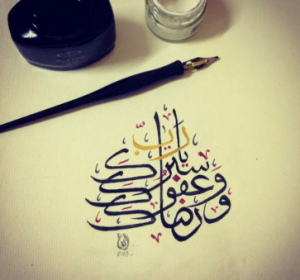 يا ربّ
سترك
وعفوك
ورضاك